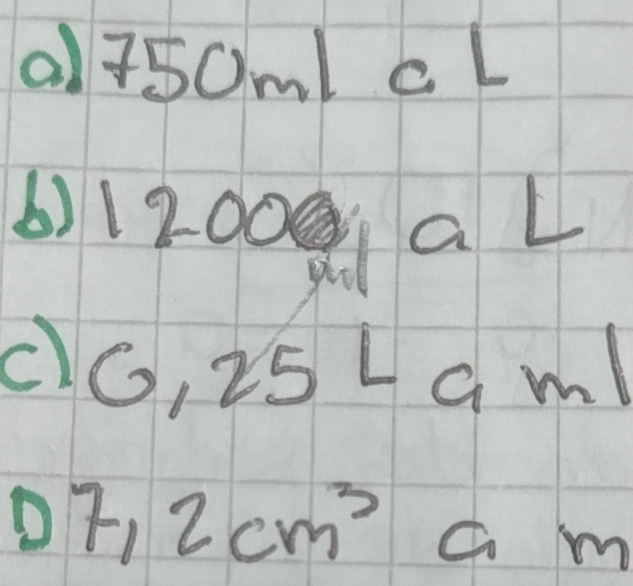 a) 750ml a L
b) 1200 ml a L
c) 0,25 L a ml
D 7,2 cm³ a m